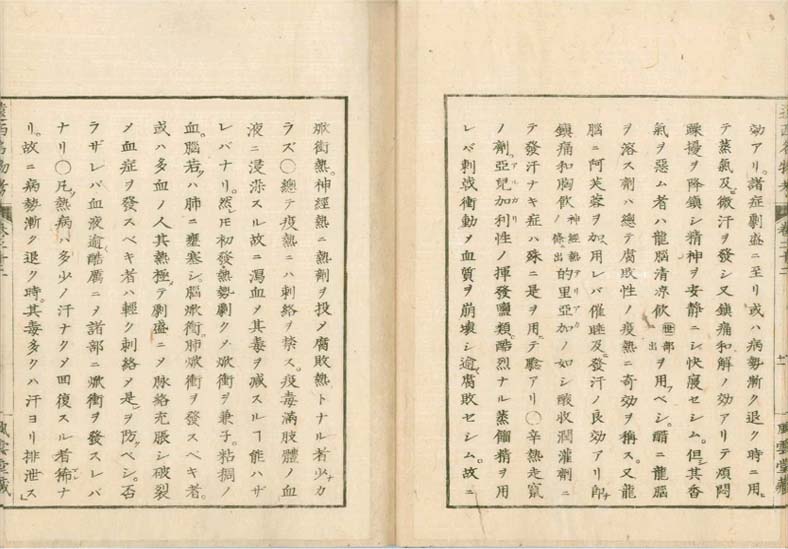 効アリ。諸症劇盛ニ至リ或ハ病勢漸ク退ク時ニ用
テ蒸氣及ビ微汗ヲ發シ又鎮痛和解ノ効アリテ煩悶
躁擾ヲ降鎮シ精神ヲ安静ニシ快寢セシム。但其香
氣ヲ惡ム者ハ龍腦清涼飲 世部ニ出 ヲ用フベシ。醋ニ龍腦
ヲ溶ス劑ハ總テ腐敗性ノ疫熱ニ奇効ヲ稱ス。又龍
腦ニ阿芙蓉ヲ加ヘ用レバ催睡及ビ發汗ノ良効アリ即チ
鎮痛和胸飲 神經熱ノ條ニ出 的里亞加ノ如シ酸收潤灌劑ニ
テ發汗ナキ症ハ殊ニ是ヲ用テ驗アリ〇辛熱走竄
ノ劑亞兒加利性ノ揮發鹽類酷烈ナル蒸餾精ヲ用
レバ刺戟衝動メ血質ヲ崩壞シ逾腐敗セシム。故ニ
焮衝熱。神經熱ニ熱劑ヲ投メ腐敗熱トナル者少カ
ラズ〇總テ疫熱ニハ刺絡ヲ禁ス。疫毒滿肢體ノ血
液ニ浸淤スル故ニ瀉血メ其毒ヲ減スルヿ能ハザ
レバナリ。然レモ初發熱勢劇クメ焮衝ヲ兼子。粘稠ノ
血。腦若クハ肺ニ壅塞シ。腦焮衝肺焮衝ヲ發スベキ者。
或ハ多血ノ人其熱極テ劇盛ニメ脉絡充脹シ破裂
メ血症ヲ發スベキ者ハ輕ク刺絡メ是ヲ防クベシ。否
ラザレバ血液逾酷厲ニメ諸部ニ焮衝ヲ發スレバ
ナリ〇凡ソ熱病ハ多少ノ汗ナクメ回復スル者稀ナ
リ。故ニ病勢漸ク退ク時。其毒多クハ汗ヨリ排泄ス
風雲堂藏